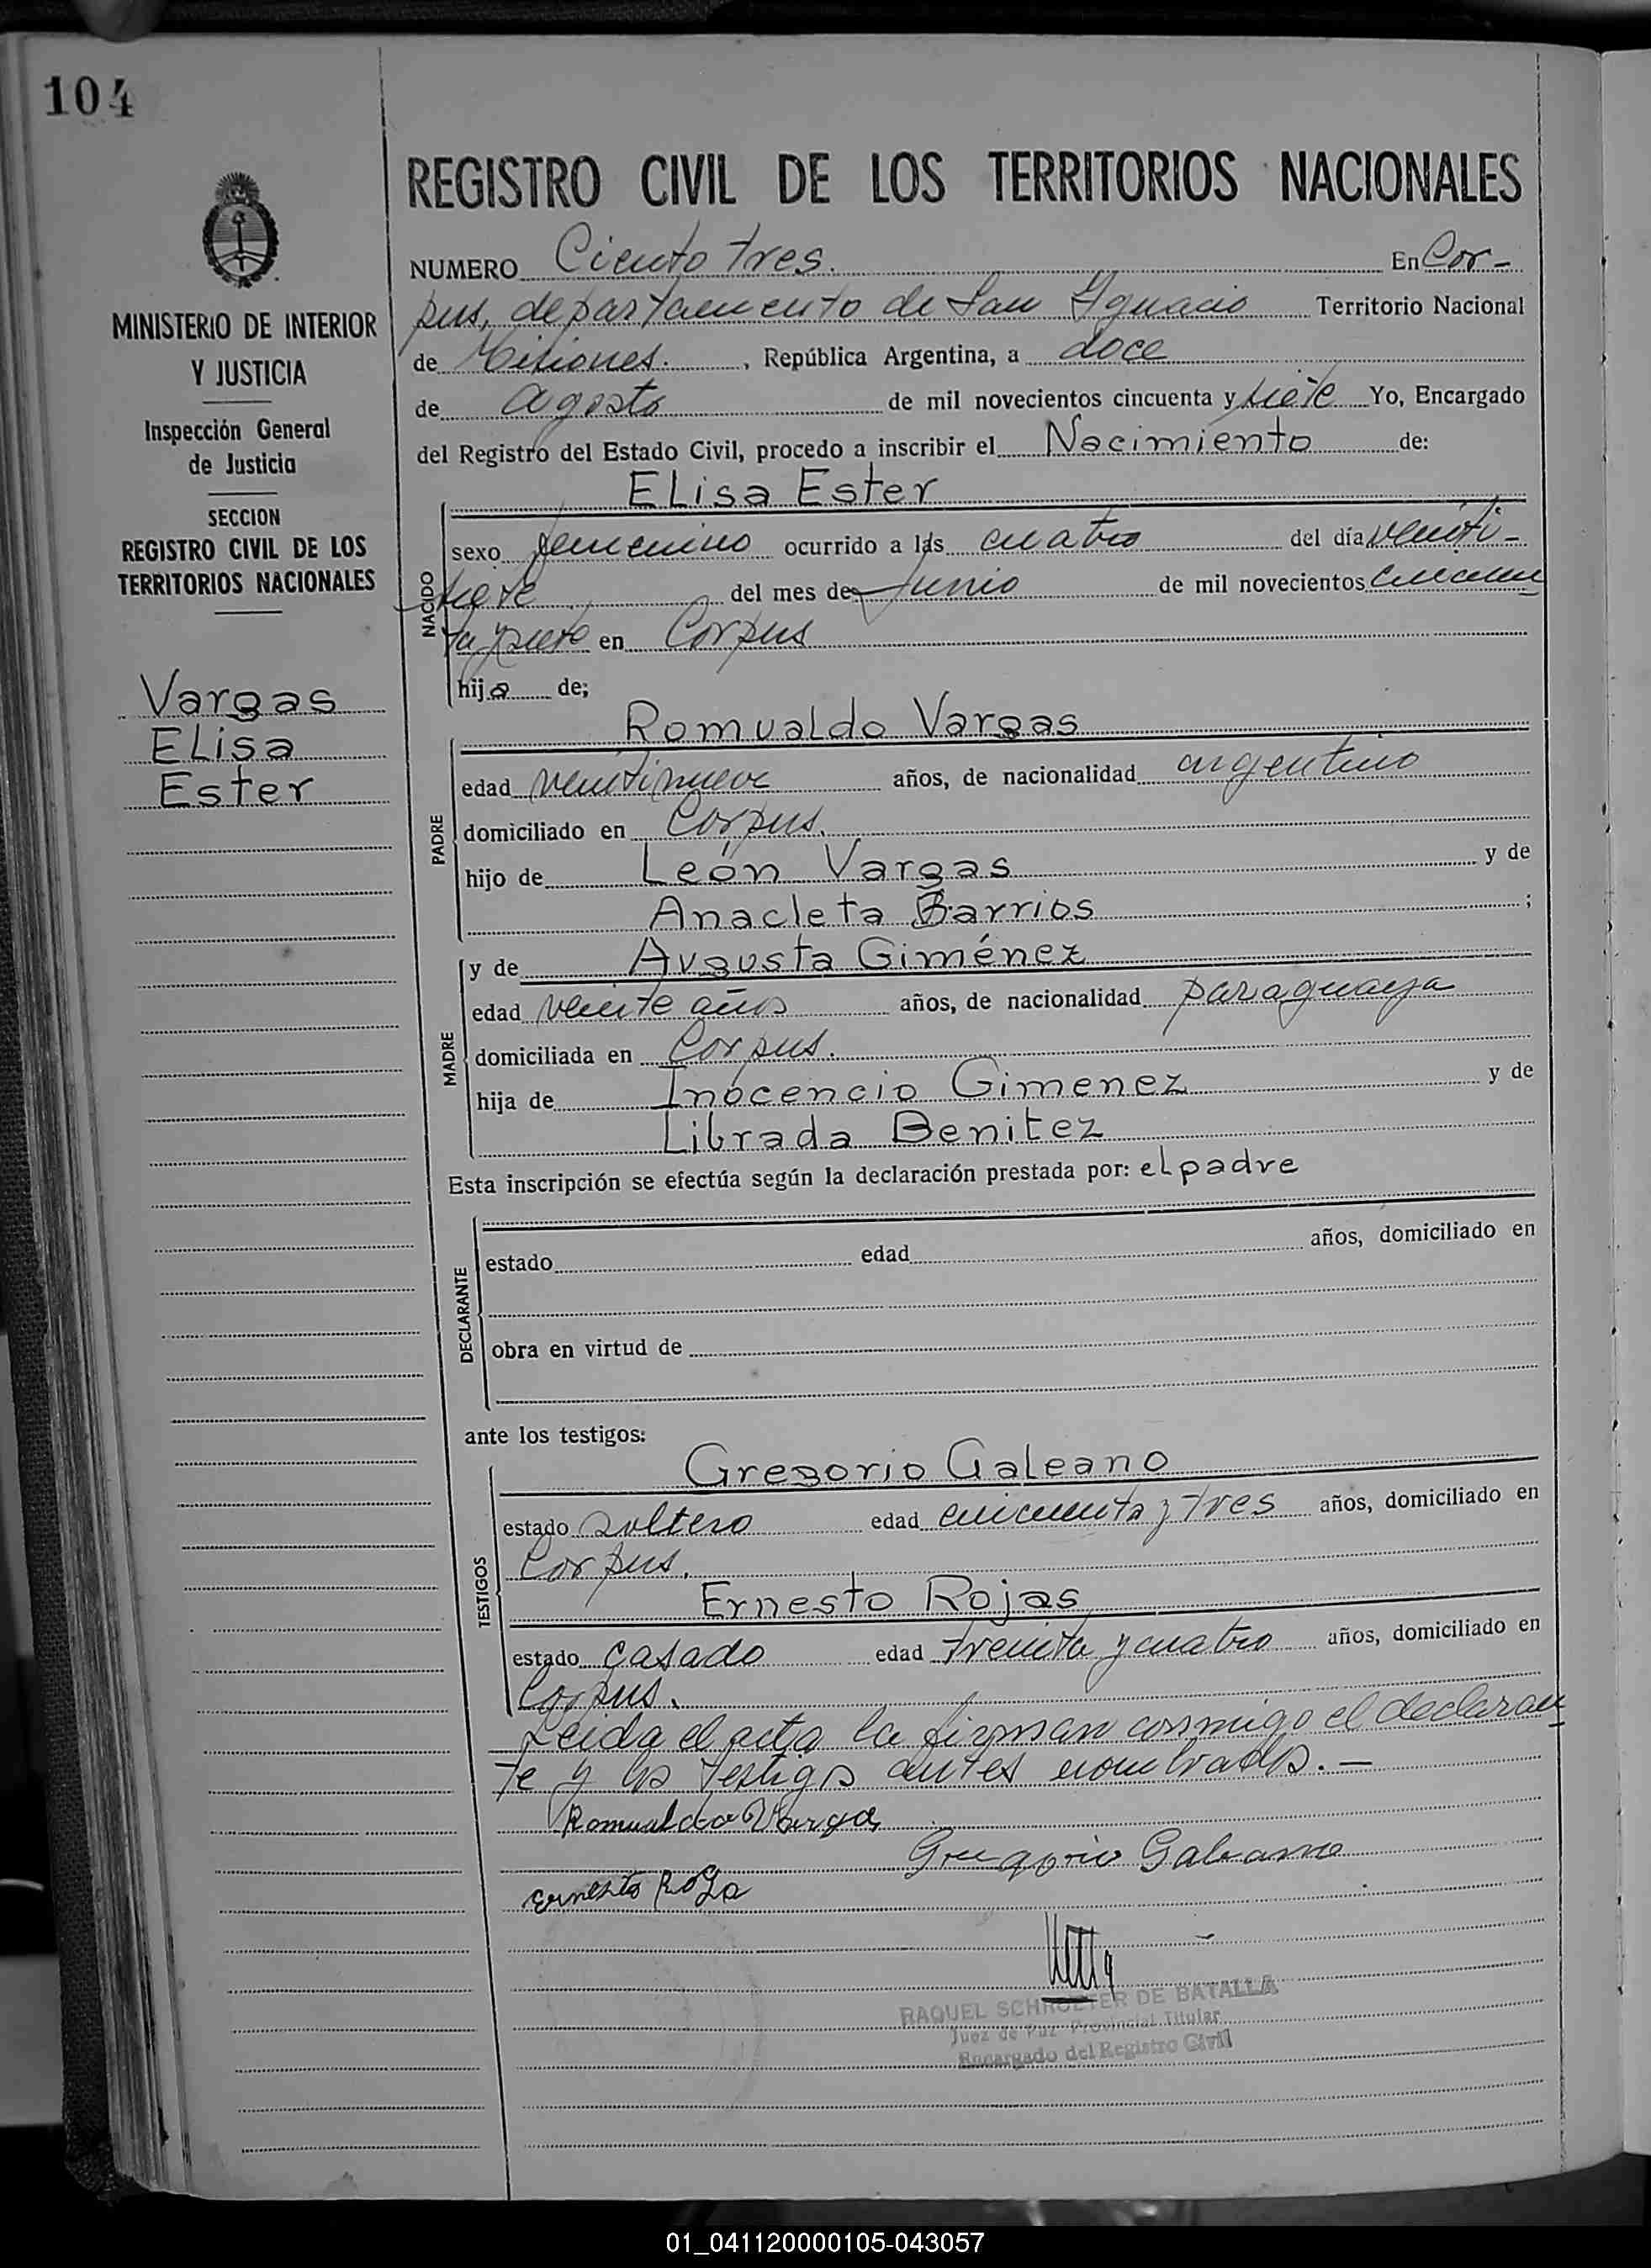 104
REGISTRO CIVIL DE LOS TERRITORIOS NACIONALES
MINISTERIO DE INTERIOR
Y JUSTICIA
Inspección General
de Justicia
SECCION
REGISTRO CIVIL DE LOS
TERRITORIOS NACIONALES
Vargas
Elisa
Ester
NUMERO Ciento tres. En Cor-
pus, departamento de San Ignacio Territorio Nacional
de Misiones. , República Argentina, a doce
de agosto de mil novecientos cincuenta y siete Yo, Encargado
del Registro del Estado Civil, procedo a inscribir el Nacimiento de:
Elisa Ester
NACIDO
sexo femenino ocurrido a las cuatro del día veinti-
siete del mes de Junio de mil novecientos cincuen
ta y siete en Corpus
hija de;
Romualdo Vargas
PADRE
edad veintinueve años, de nacionalidad argentino
domiciliado en Corpus.
hijo de León Vargas y de
Anacleta Barrios ;
y de Augusta Giménez
MADRE
edad veinte años años, de nacionalidad paraguaya
domiciliada en Corpus.
hija de Inócencio Gimenez y de
Librada Benitez
Esta inscripción se efectúa según la declaración prestada por: el padre
DECLARANTE
estado edad años, domiciliado en
obra en virtud de
ante los testigos:
Gregorio Galeano
TESTIGOS
estado soltero edad cincuenta y tres años, domiciliado en
Corpus.
Ernesto Rojas
estado casado edad treinta y cuatro años, domiciliado en
Corpus.
Leida el acta la firman conmigo el declaran
te y los testigos antes nombrados. —
Romualdo Vargas
Gregorio Galeano
Ernesto
RAQUEL SCHROETER DE BATALLA
Juez de Paz Provincial Titular
Encargado del Registro Civil
01_041120000105-043057